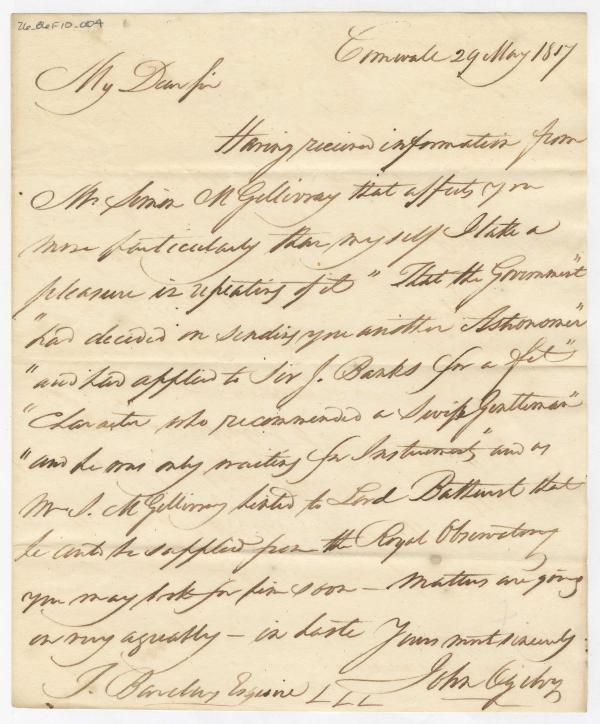 26_B6F10_004
Cornwall 29 May 1817
My Dear Sir
Having received information from
Mr Simon McGillivray that affects you
more particularly than myself I take a
pleasure in repeating of it " That the Government"
"had decided on sending you another Astronomer"
"and had applied to Sir J. Banks for a fit"
"Character who recommended a Swiss Gentleman"
"and he was only waiting for Instruments" and as
Mr S. McGillivray hinted to Lord Bathurst that
he could be supplied from the Royal Observatory
you may look for him soon — Matters are going
on very agreably — in haste Yours most sincerely
John Ogilvy
T. Barclay Esquire